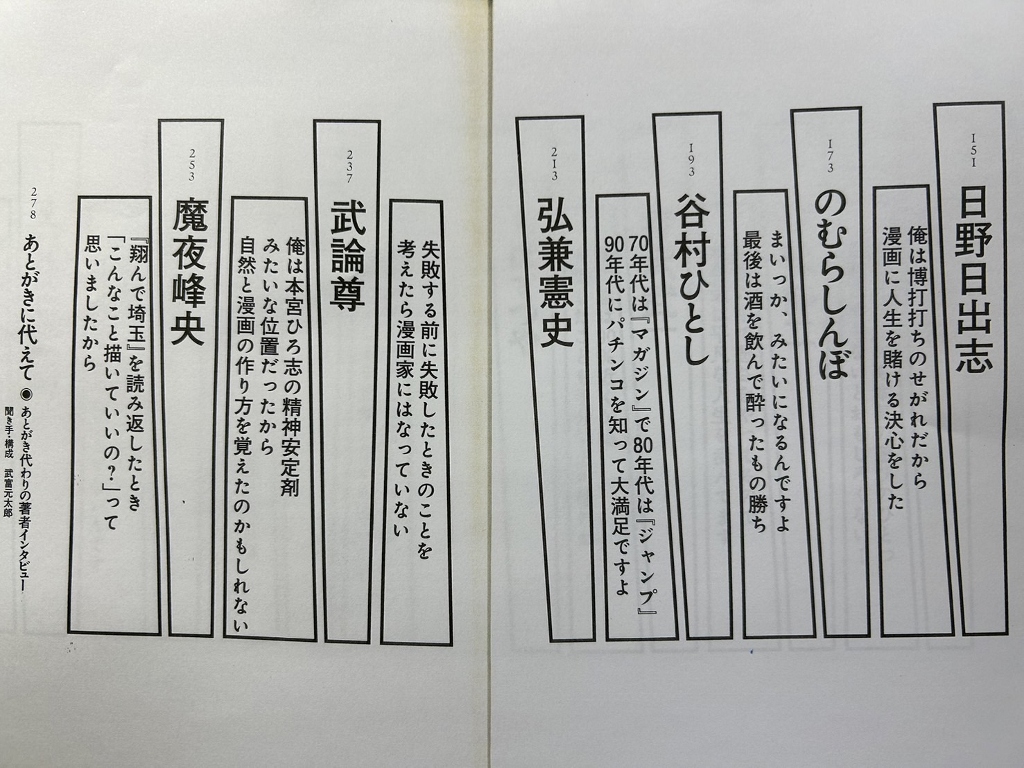 151
日野日出志
俺は博打打ちのせがれだから
漫画に人生を賭ける決心をした
173
のむらしんぼ
まいっか、みたいになるんですよ
最後は酒を飲んで酔ったもの勝ち
193
谷村ひとし
70年代は『マガジン』で80年代は『ジャンプ』
90年代にパチンコを知って大満足ですよ
213
弘兼憲史
失敗する前に失敗したときのことを
考えたら漫画家にはなっていない
237
武論尊
俺は本宮ひろ志の精神安定剤
みたいな位置だったから
自然と漫画の作り方を覚えたのかもしれない
253
魔夜峰央
『翔んで埼玉』を読み返したとき
「こんなこと描いていいの？」って
思いましたから
278
あとがきに代えて◉あとがき代わりの著者インタビュー
聞き手・構成 武富元太郎